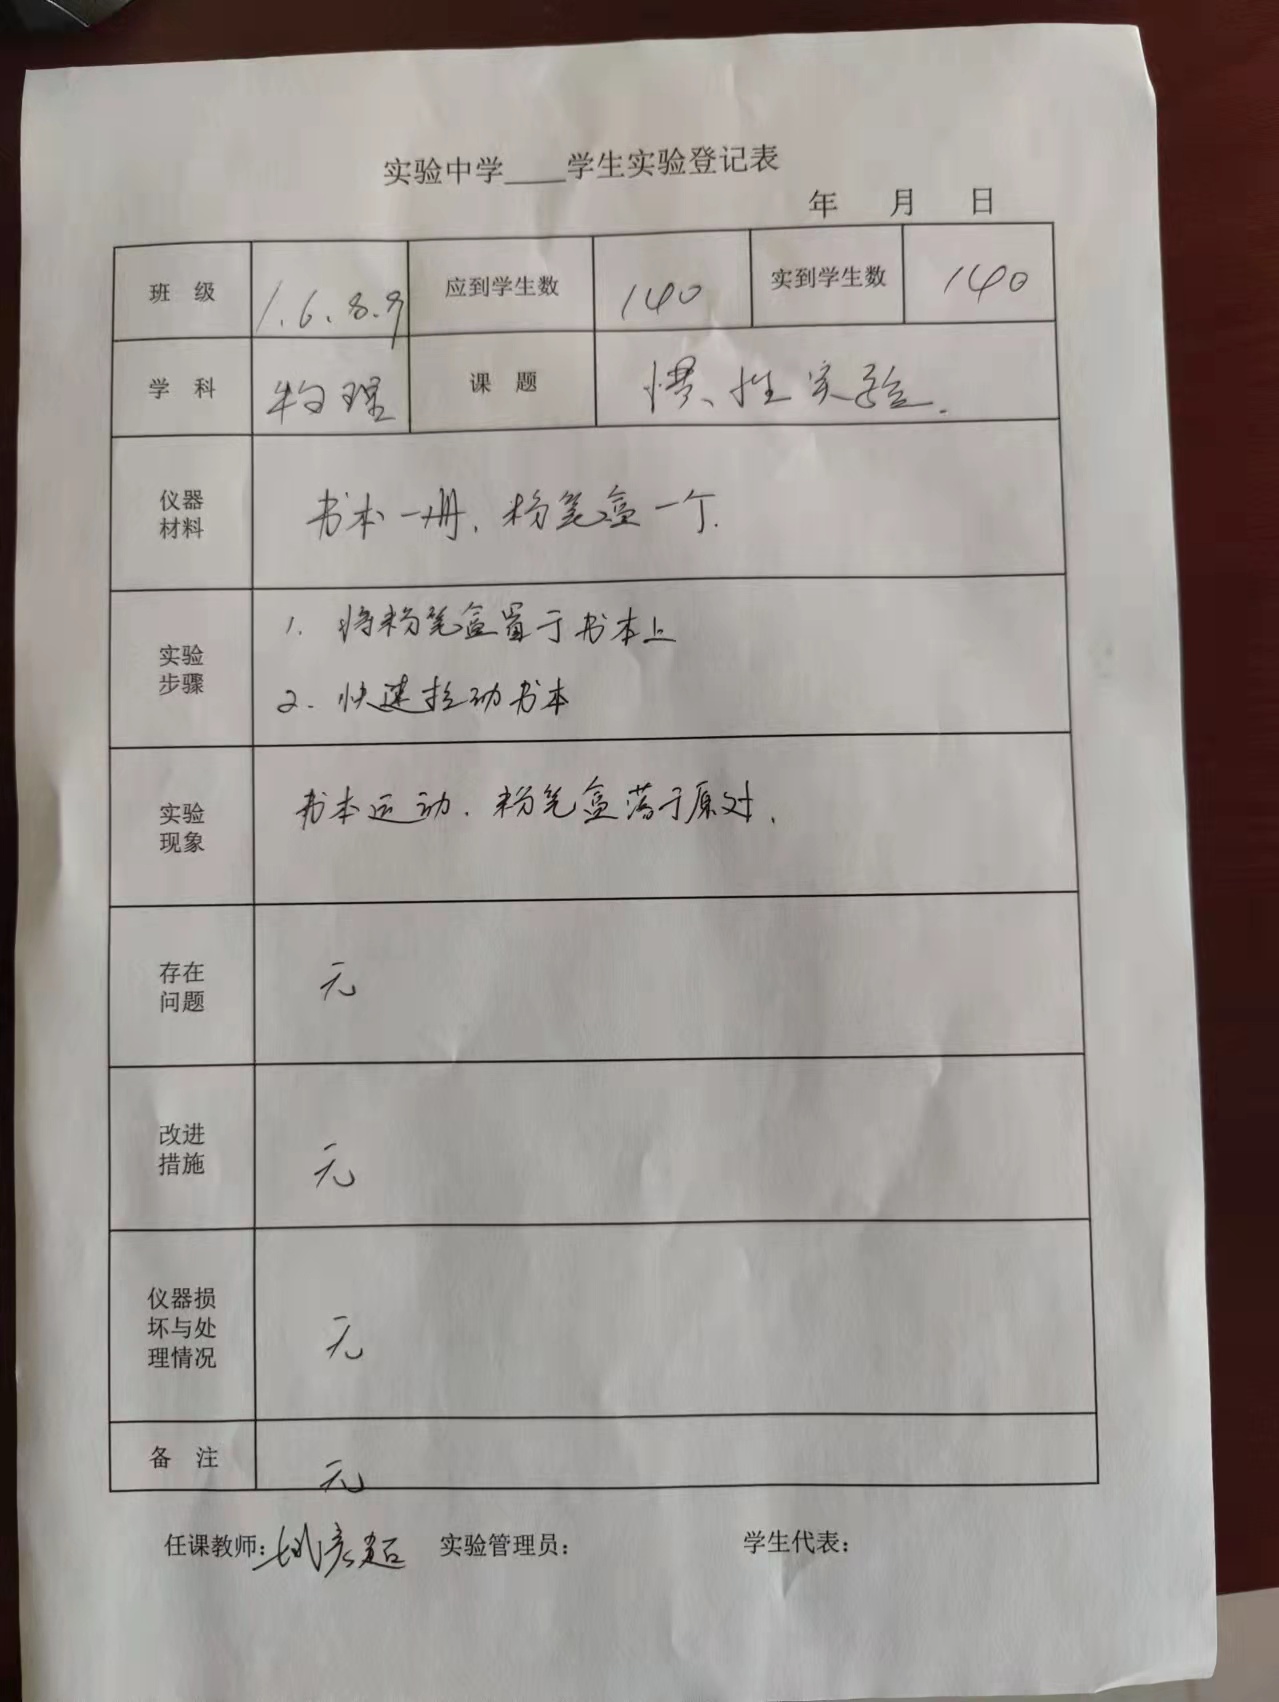 实验中学____学生实验登记表
年 月 日
班 级 1.6.8.9 应到学生数 140 实到学生数 140
学 科 物理 课 题 惯性实验.
仪器
材料
书本一册、粉笔盒一个.
实验
步骤
1. 将粉笔盒置于书本上
2. 快速拉动书本
实验
现象
书本运动.粉笔盒落于原处.
存在
问题
无
改进
措施
无
仪器损
坏与处
理情况
无
备 注 无
任课教师: 姚彦超 实验管理员: 学生代表: